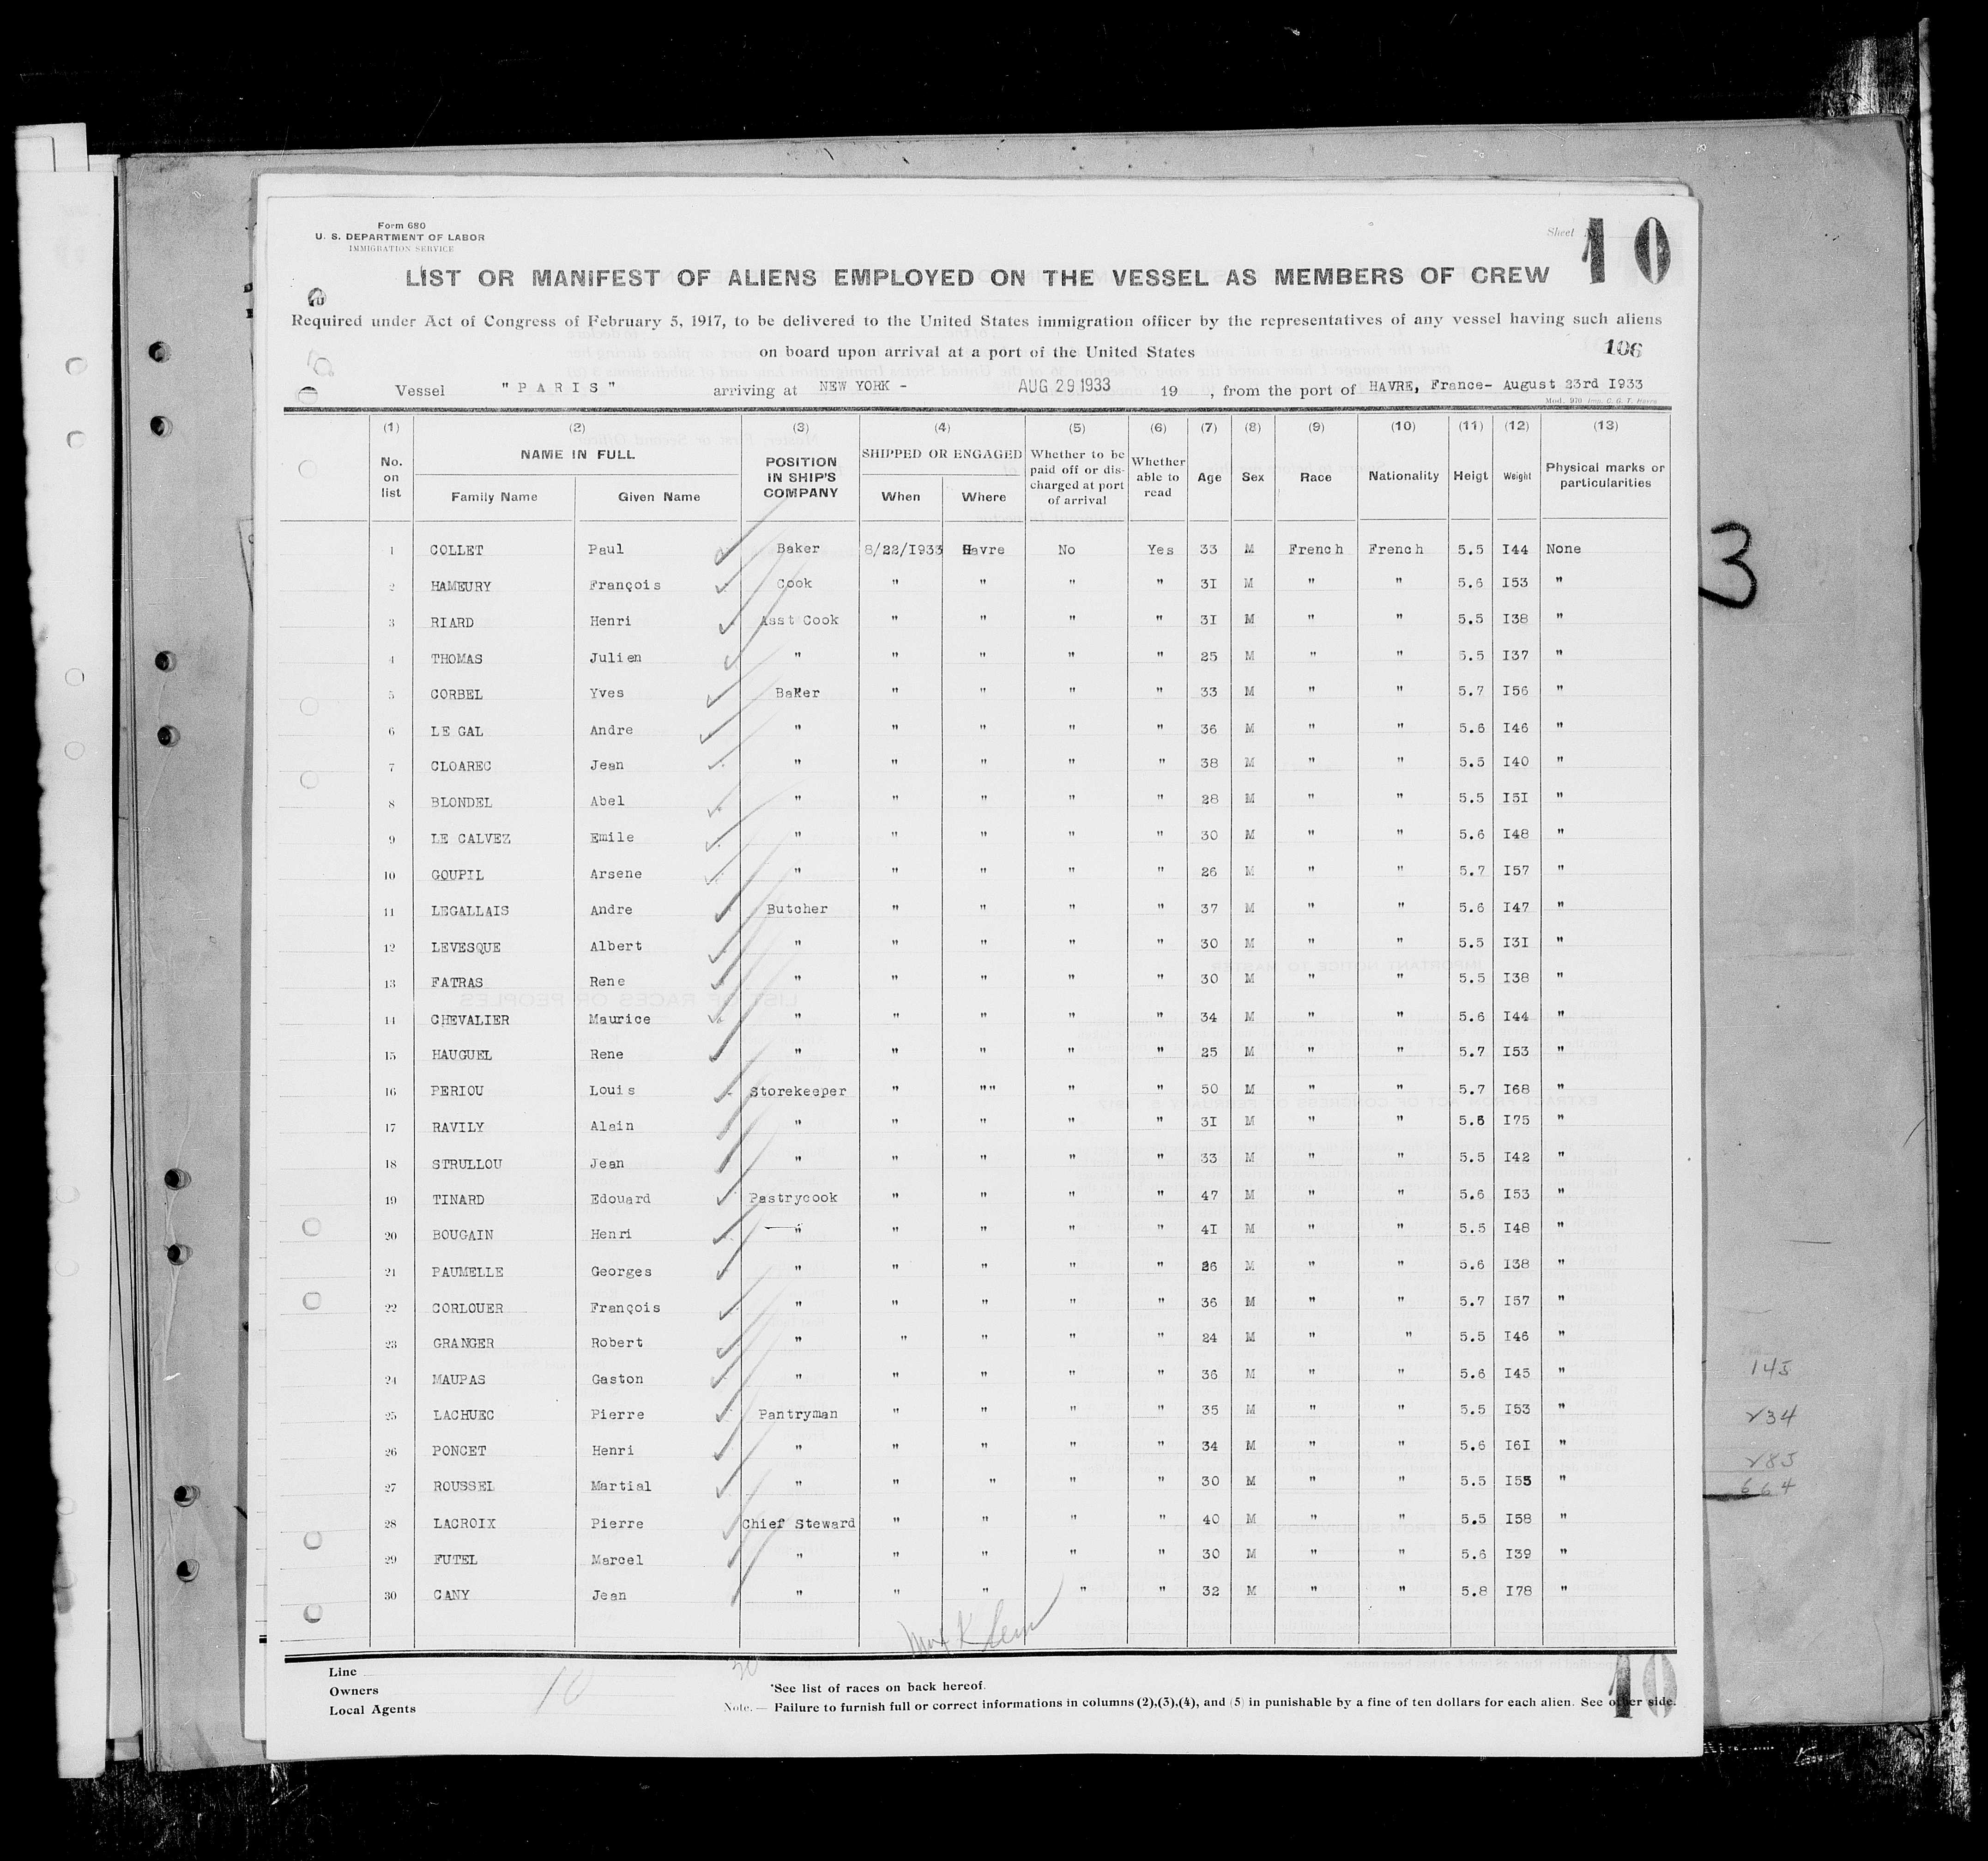 Form 680
U. S. DEPARTMENT OF LABOR
IMMIGRATION SERVICE
Sheet
10
LIST OR MANIFEST OF ALIENS EMPLOYED ON THE VESSEL AS MEMBERS OF CREW
Required under Act of Congress of February 5, 1917, to be delivered to the United States immigration officer by the representatives of any vessel having such aliens
on board upon arrival at a port of the United States
106
Vessel "PARIS" arriving at NEW YORK - AUG 29 1933 19 , from the port of HAVRE, France- August 23rd I933
Mod. 970 Imp. C. G. T. Havre
(1) (2) (3) (4) (5) (6) (7) (8) (9) (10) (11) (12) (13)
No. on list NAME IN FULL Family Name Given Name POSITION IN SHIP'S COMPANY SHIPPED OR ENGAGED When Where Whether to be paid off or discharged at port of arrival Whether able to read Age Sex Race Nationality Heigt Weight Physical marks or particularities
1 COLLET Paul Baker 8/22/I933 Havre No Yes 33 M French French 5.5 I44 None
2 HAMEURY François Cook " " " " 3I M " " 5.6 I53 "
3 RIARD Henri Asst Cook " " " " 3I M " " 5.5 I38 "
4 THOMAS Julien " " " " " 25 M " " 5.5 I37 "
5 CORBEL Yves BaKer " " " " 33 M " " 5.7 I56 "
6 LE GAL Andre " " " " " 36 M " " 5.6 I46 "
7 CLOAREC Jean " " " " " 38 M " " 5.5 I40 "
8 BLONDEL Abel " " " " " 28 M " " 5.5 I5I "
9 LE CALVEZ Emile " " " " " 30 M " " 5.6 I48 "
10 GOUPIL Arsene " " " " " 26 M " " 5.7 I57 "
11 LEGALLAIS Andre Butcher " " " " 37 M " " 5.6 I47 "
12 LEVESQUE Albert " " " " " 30 M " " 5.5 I3I "
13 FATRAS Rene " " " " " 30 M " " 5.5 I38 "
14 CHEVALIER Maurice " " " " " 34 M " " 5.6 I44 "
15 HAUGUEL Rene " " " " " 25 M " " 5.7 I53 "
16 PERIOU Louis Storekeeper " "" " " 50 M " " 5.7 I68 "
17 RAVILY Alain " " " " " 3I M " " 5.6 I75 "
18 STRULLOU Jean " " " " " 33 M " " 5.5 I42 "
19 TINARD Edouard Pastrycook " " " " 47 M " " 5.6 I53 "
20 BOUGAIN Henri " " " " " 4I M " " 5.5 I48 "
21 PAUMELLE Georges " " " " " 26 M " " 5.6 I38 "
22 CORLOUER François " " " " " 36 M " " 5.7 I57 "
23 GRANGER Robert " " " " " 24 M " " 5.5 I46 "
24 MAUPAS Gaston " " " " " 36 M " " 5.6 I45 "
25 LACHUEC Pierre Pantryman " " " " 35 M " " 5.5 I53 "
26 PONCET Henri " " " " " 34 M " " 5.6 I6I "
27 ROUSSEL Martial " " " " " 30 M " " 5.5 I55 "
28 LACROIX Pierre Chief Steward " " " " 40 M " " 5.5 I58 "
29 FUTEL Marcel " " " " " 30 M " " 5.6 I39 "
30 CANY Jean " " " " " 32 M " " 5.8 I78 "
3
145
234
285
664
Max Klein
Line
Owners
Local Agents
10
30
*See list of races on back hereof.
Note. — Failure to furnish full or correct informations in columns (2),(3),(4), and (5) in punishable by a fine of ten dollars for each alien. See other side.
10